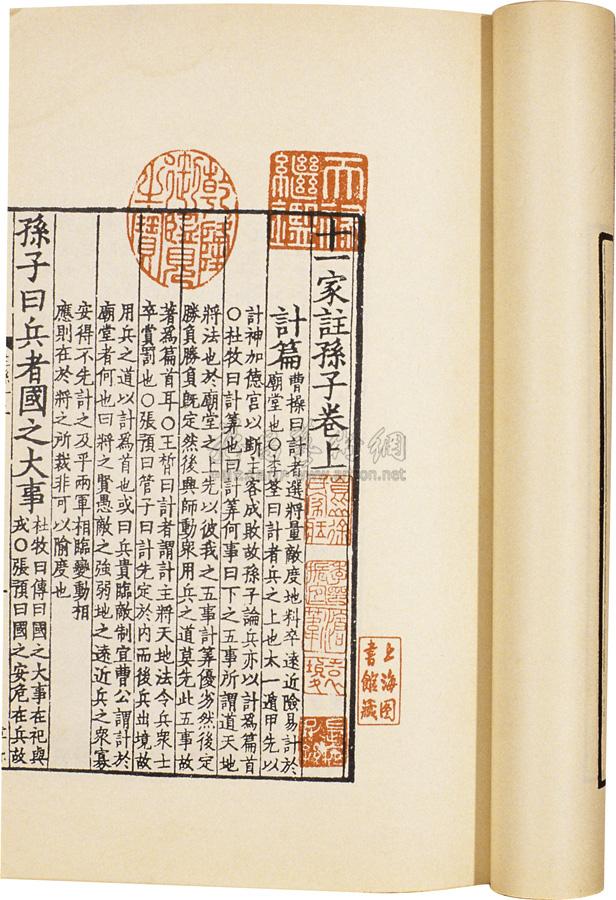 十一家註孫子卷上
計篇 曹操曰計者選將量敵度地料卒遠近險易計於
廟堂也○李筌曰計者兵之上也太一遁甲先以
計神加德宮以斷主客成敗故孫子論兵亦以計爲篇首
○杜牧曰計算也曰計算何事曰下之五事所謂道天地
將法也於廟堂之上先以彼我之五事計算優劣然後定
勝負勝負旣定然後興師動衆用兵之道莫先此五事故
著爲篇首耳○王晳曰計者謂計主將天地法令兵衆士
卒賞罰也○張預曰管子曰計先定於內而後兵出境故
用兵之道以計爲首也或曰兵貴臨敵制宜曹公謂計於
廟堂者何也曰將之賢愚敵之強弱地之遠近兵之衆寡
安得不先計之及乎兩軍相臨變動相
應則在於將之所裁非可以隃度也
孫子曰兵者國之大事 杜牧曰傳曰國之大事在祀與
戎○張預曰國之安危在兵故
天祿繼鑑
乾隆御覽之寶
上海圖
書館藏